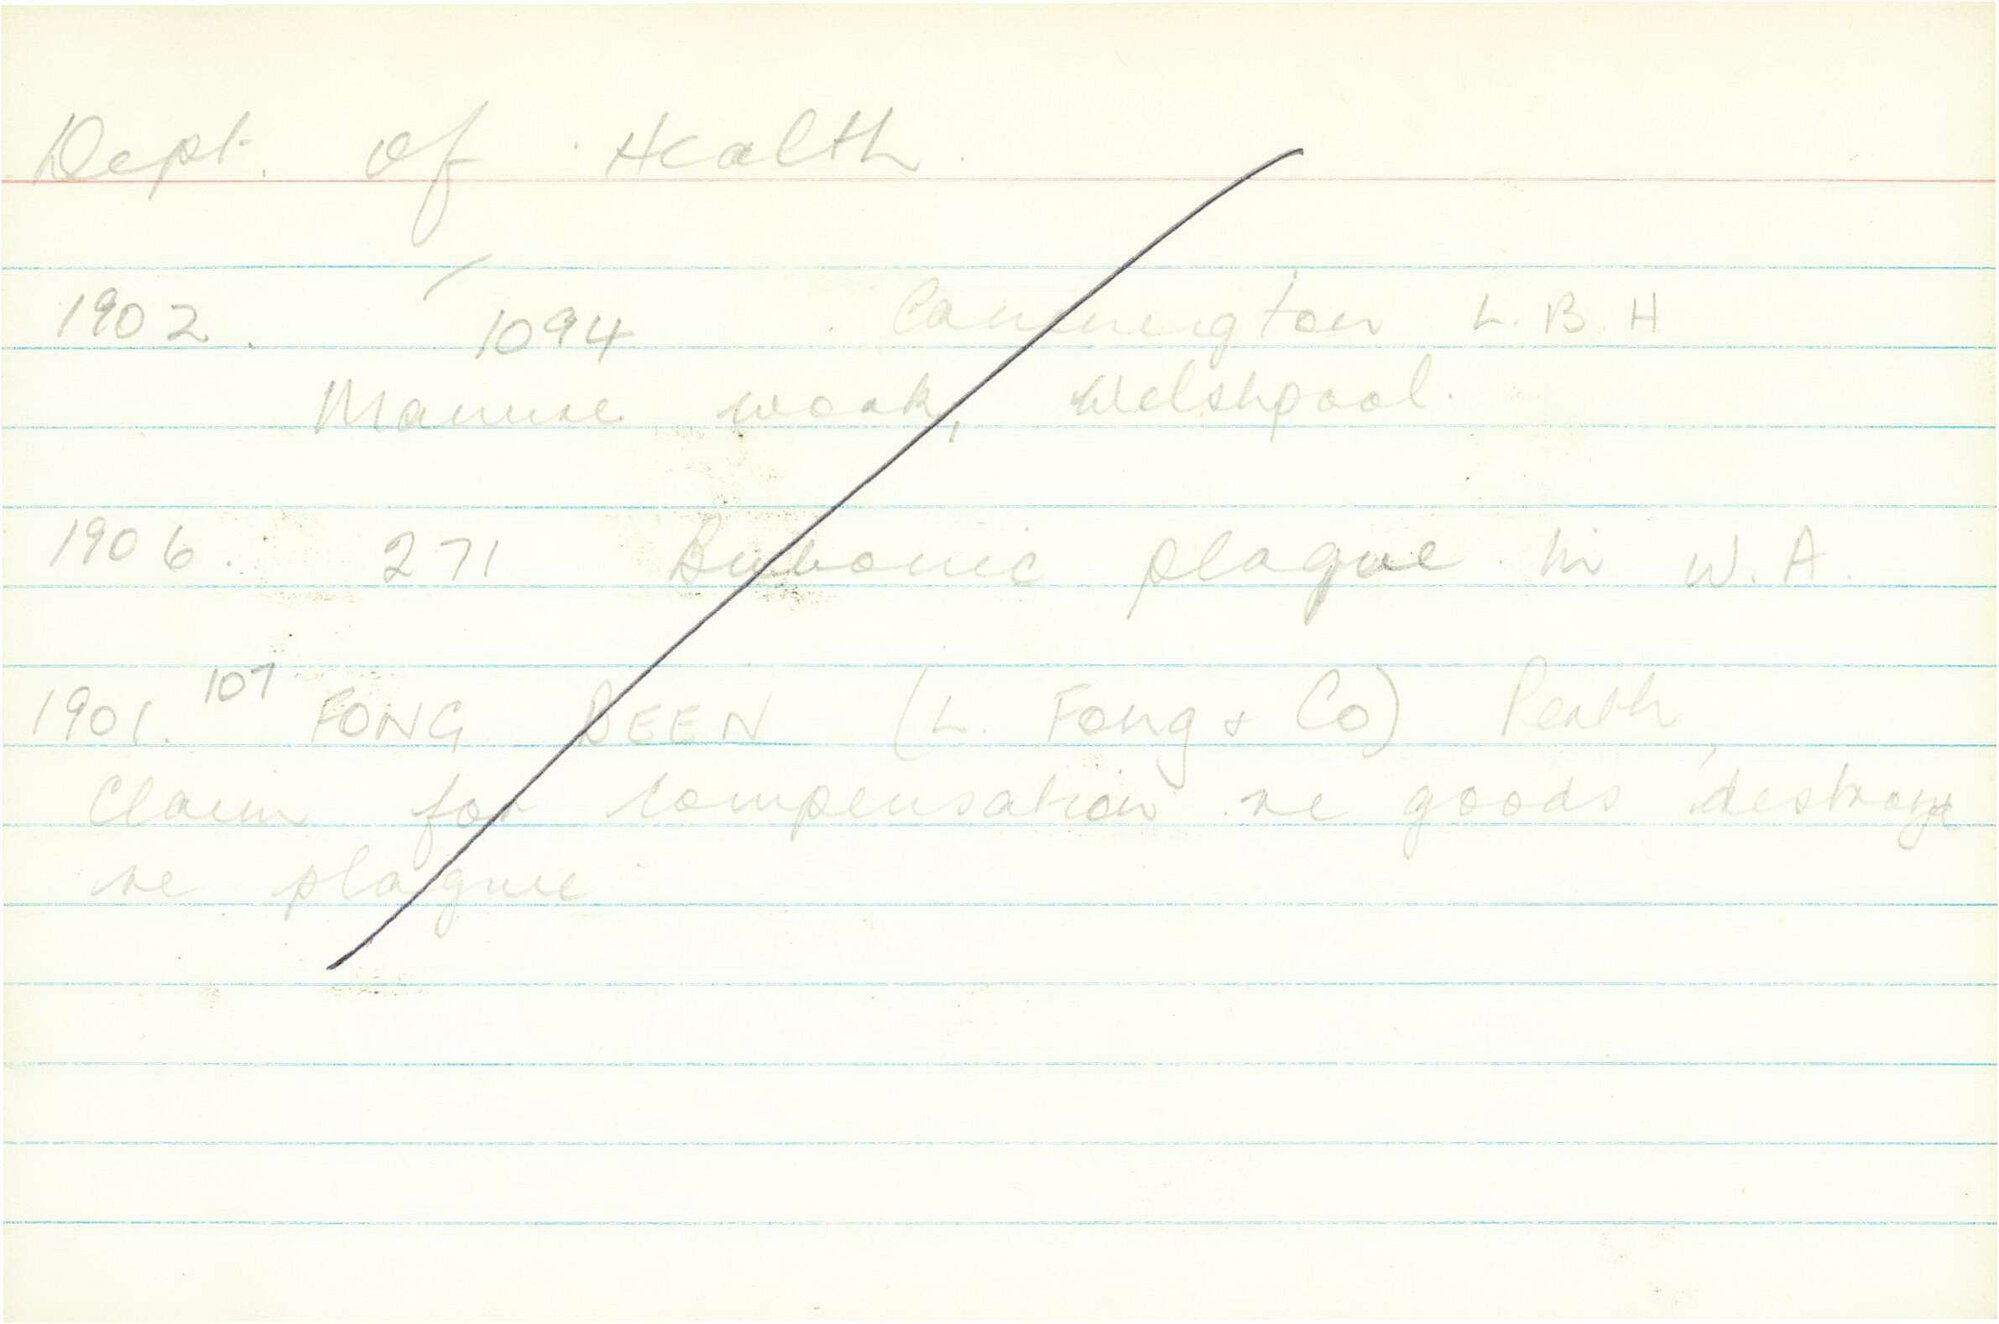 Dept. of Health.
1902. 1094 Cannington L.B.H
Manure work, Welshpool.
1906. 271 Bubonic plague in W.A.
1901. 107 FONG DEEN (L. Fong & Co) Perth,
Claim for compensation re goods destroyed
re plague